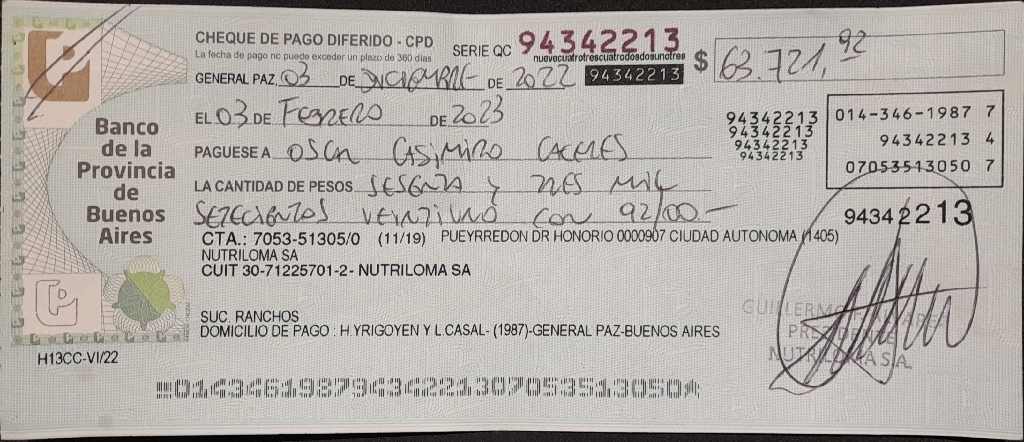 CHEQUE DE PAGO DIFERIDO - CPD
La fecha de pago no puede exceder un plazo de 360 días
SERIE QC 94342213
nuevecuatrotrescuatrodosdosunotres
94342213
$ 63.721,92
GENERAL PAZ, 03 DE DICIEMBRE DE 2022
EL 03 DE FEBRERO DE 2023
PAGUESE A OSCAR CASIMIRO CACERES
LA CANTIDAD DE PESOS SESENTA y TRES MIL
SETECIENTOS VEINTIUNO CON 92/00.-
94342213
94342213
94342213
94342213
014-346-1987 7
94342213 4
07053513050 7
94342213
Banco
de la
Provincia
de
Buenos
Aires
CTA.: 7053-51305/0 (11/19) PUEYRREDON DR HONORIO 0000907 CIUDAD AUTONOMA (1405)
NUTRILOMA SA
CUIT 30-71225701-2- NUTRILOMA SA
SUC. RANCHOS
DOMICILIO DE PAGO : H.YRIGOYEN Y L.CASAL- (1987)-GENERAL PAZ-BUENOS AIRES
GUILLERMO
PRESIDENTE
NUTRILOMA S.A.
H13CC-VI/22
01434619879434221307053513050